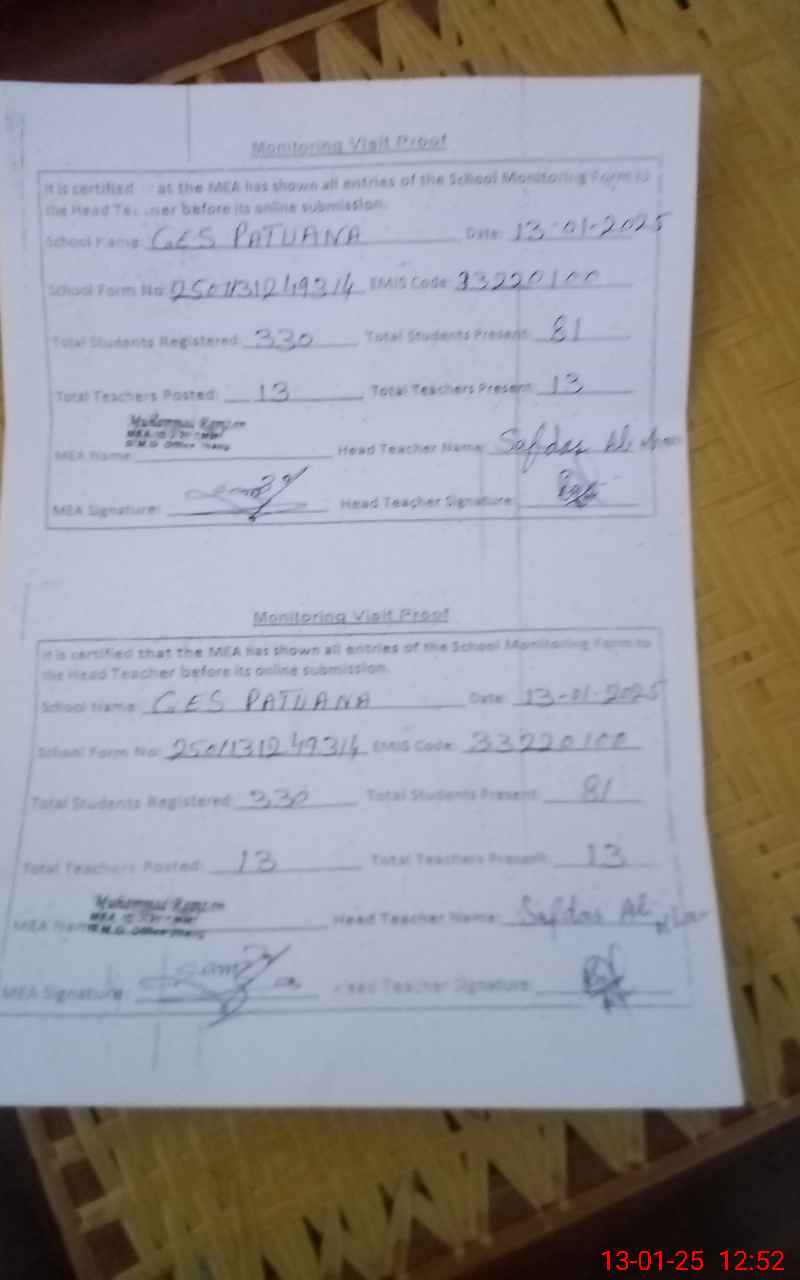 Monitoring Visit Proof
It is certified at the MEA has shown all entries of the School Monitoring Form to
the Head before its online submission.
School Name: GES PATUANA Date: 13-01-2025
School Form No: EMIS Code: 33220100
Total Students Registered: 330 Total Students Present: 81
Total Teachers Posted: 13 Total Teachers Present: 13
Muhammad
MEA Name Head Teacher Name: Safdar Ali
MEA Signature: Head Teacher Signature:
Monitoring Visit Proof
It is certified that the MEA has shown all entries of the School Monitoring Form to
the Head Teacher before its online submission.
School Name: GES PATUANA Date: 13-01-2025
School Form No: EMIS Code: 33220100
Total Students Registered: 330 Total Students Present: 81
Total Teachers Posted: 13 Total Teachers Present: 13
Muhammad
MEA Name Head Teacher Name: Safdar Ali
MEA Signature: Head Teacher Signature:
13-01-25 12:52